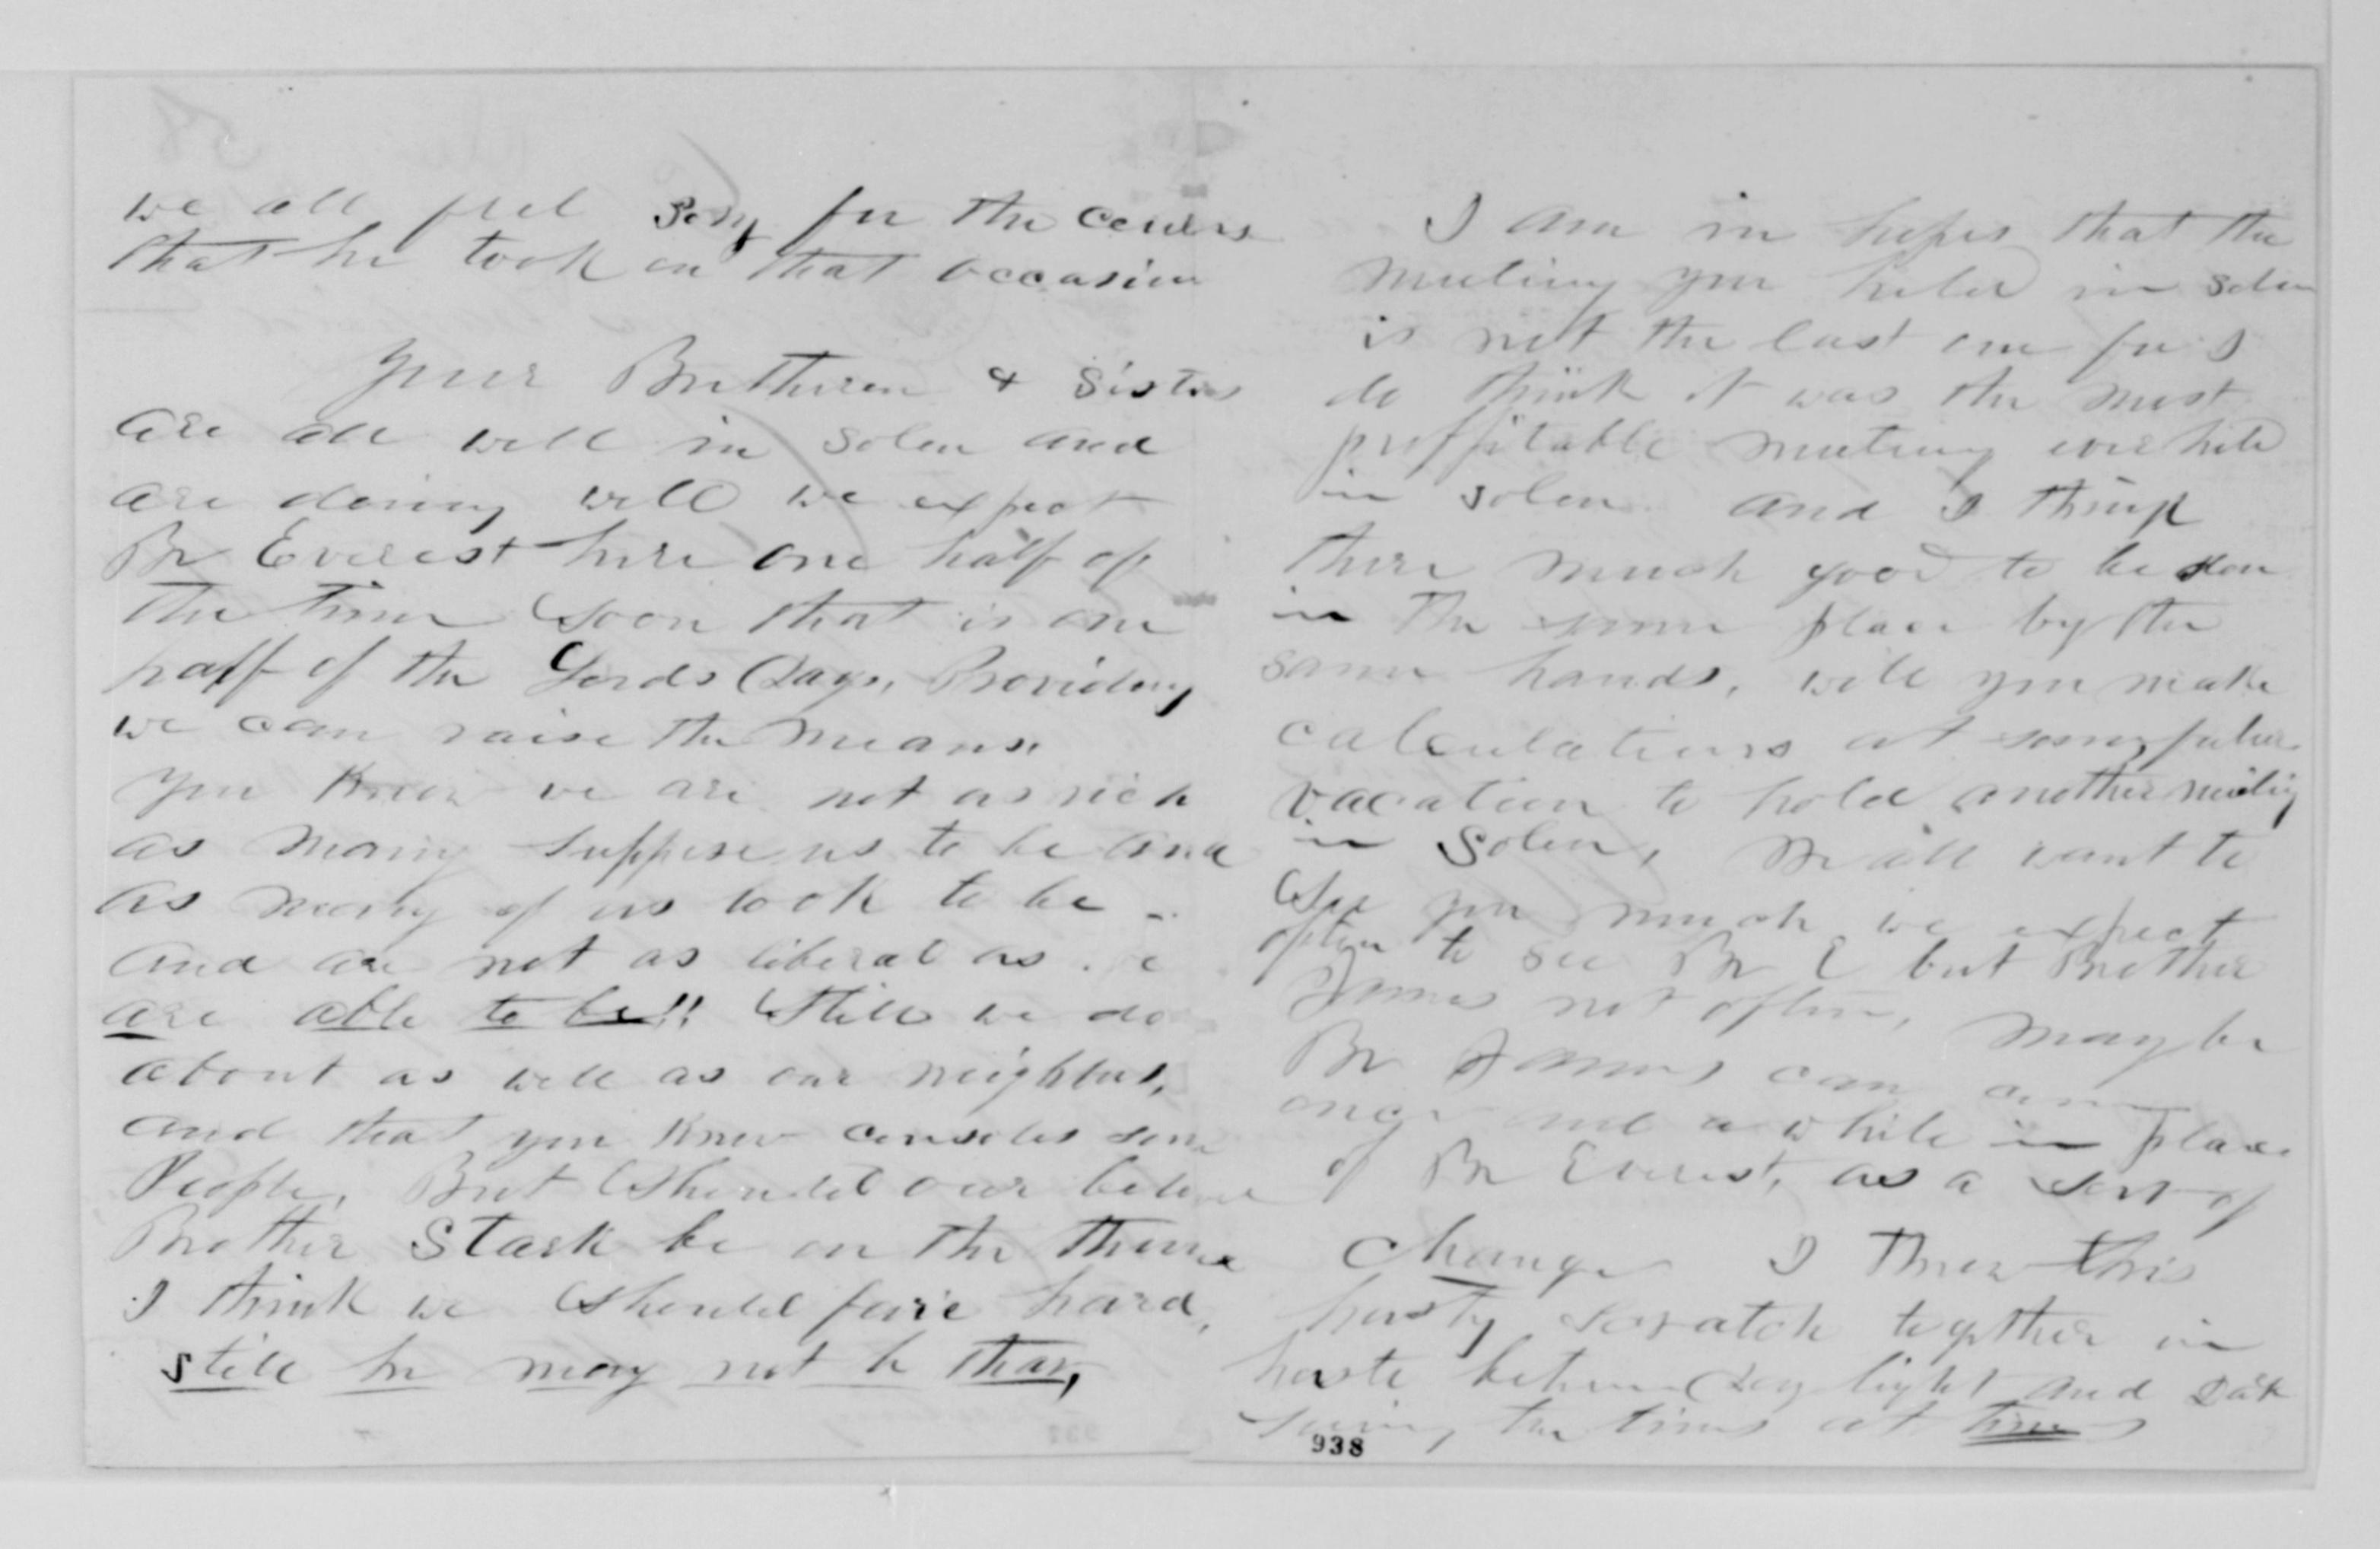 we all feel Sory for the course
that he took on that occasion
Your Bretheren & Sisters
are all well in Solon and
are doing well we expect
Br Everest here one half of
the time Soon that is one
half of the Lords Days, Providing
we can raise the means.
You know we are not as rich
as many suppose us to be and
as many of us look to be
and are not as liberal as
are able to be!! Still we do
about as well as our neighbors,
and that you know consoles some
People, But Should our beloved
Brother Stark be on the throne
I think we Should faire hard,
still he may not be thar,
I am in hopes that the
meeting you held in Solon
is not the last one for I
do think it was the most
proffitable meeting ever held
in Solon and I think
there much good to be don
in the same place by the
same hands, will you make
calculations at some future
vacation to hold another meeting
in Solon, We all want to
See you much we expect
often to see Br E but Brother
James not often, may be
Br James can come
once and a while in place
of Br Everest, as a sort of
change I threw this
hasty scratch together in
haste between Day light and Dark
the times at times
938